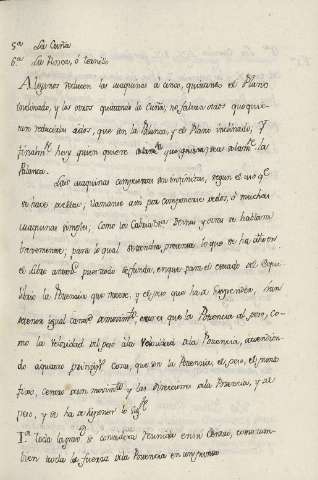 5.ª La Cuña
6.ª La Rosca, ó tornillo
Algunos reducen las maquinas á cinco, quitando el Plano
Inclinado, y los otros quitando la Cuña, no faltan otros que quie-
ren reducirlas á dos, que son la Palanca, y el Plano inclinado, Y
finalm.te hay quien quiere que sea la
Palanca.
Las maquinas compuestas son infinitas, segun el uso q.e
se hace de ellas; llamanse assi por componerse de dos, ó muchas
maquinas simples, como los Cabriâ y otras se hablara
brevemente; para lo qual se tendra presente lo que se ha dho en
el libro pues todo se funda, en que para el estado del Equi-
librio la Potencia que mueve, y el peso que ha de suspender,
tener igual de movim.to, esto es que la Potencia al peso, co-
mo la velocidad del peso à la velocidad de la Potencia, atendien-
do à quatro principi.s cosas, que son la Potencia, el peso, el punto
fixo, Centro de un movim.to y las direciones de la Potencia, y del
peso, y se ha de suponer lo sig.te
1.ª Toda la grav.d se considera reunida en un Centro, como tam-
bien toda la fuerza de la Potencia en un punto